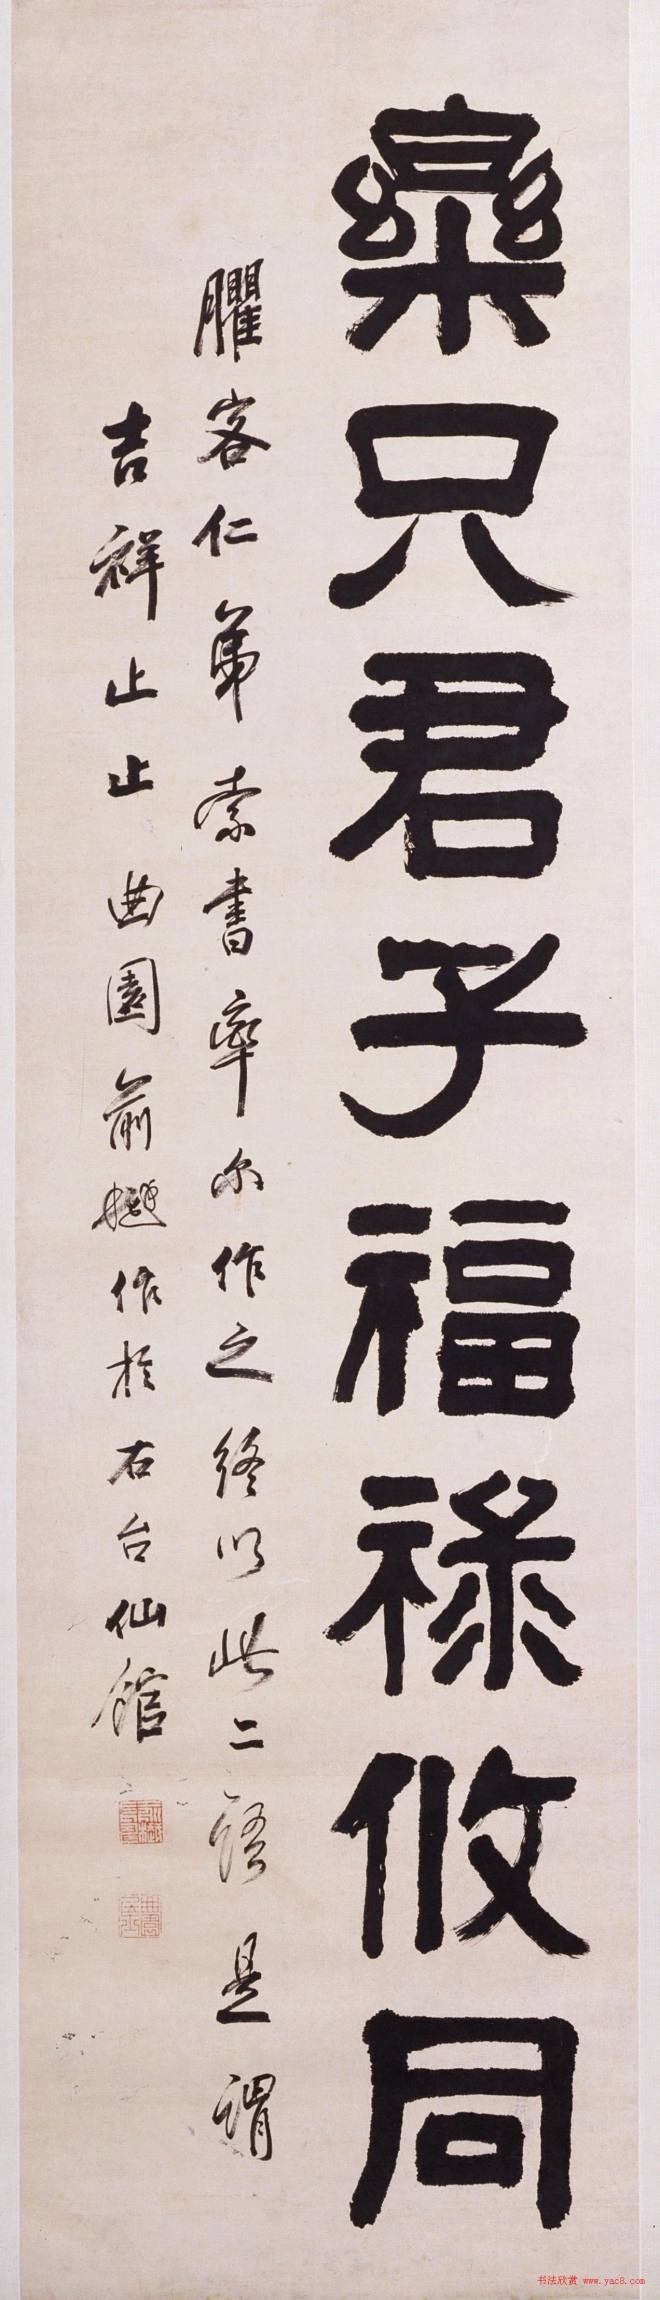 樂只君子福祿攸同
臞客仁弟索書率尔作之終以此二語是謂
吉祥止止曲園俞樾作於右台仙館
书法欣赏 www.yac8.com